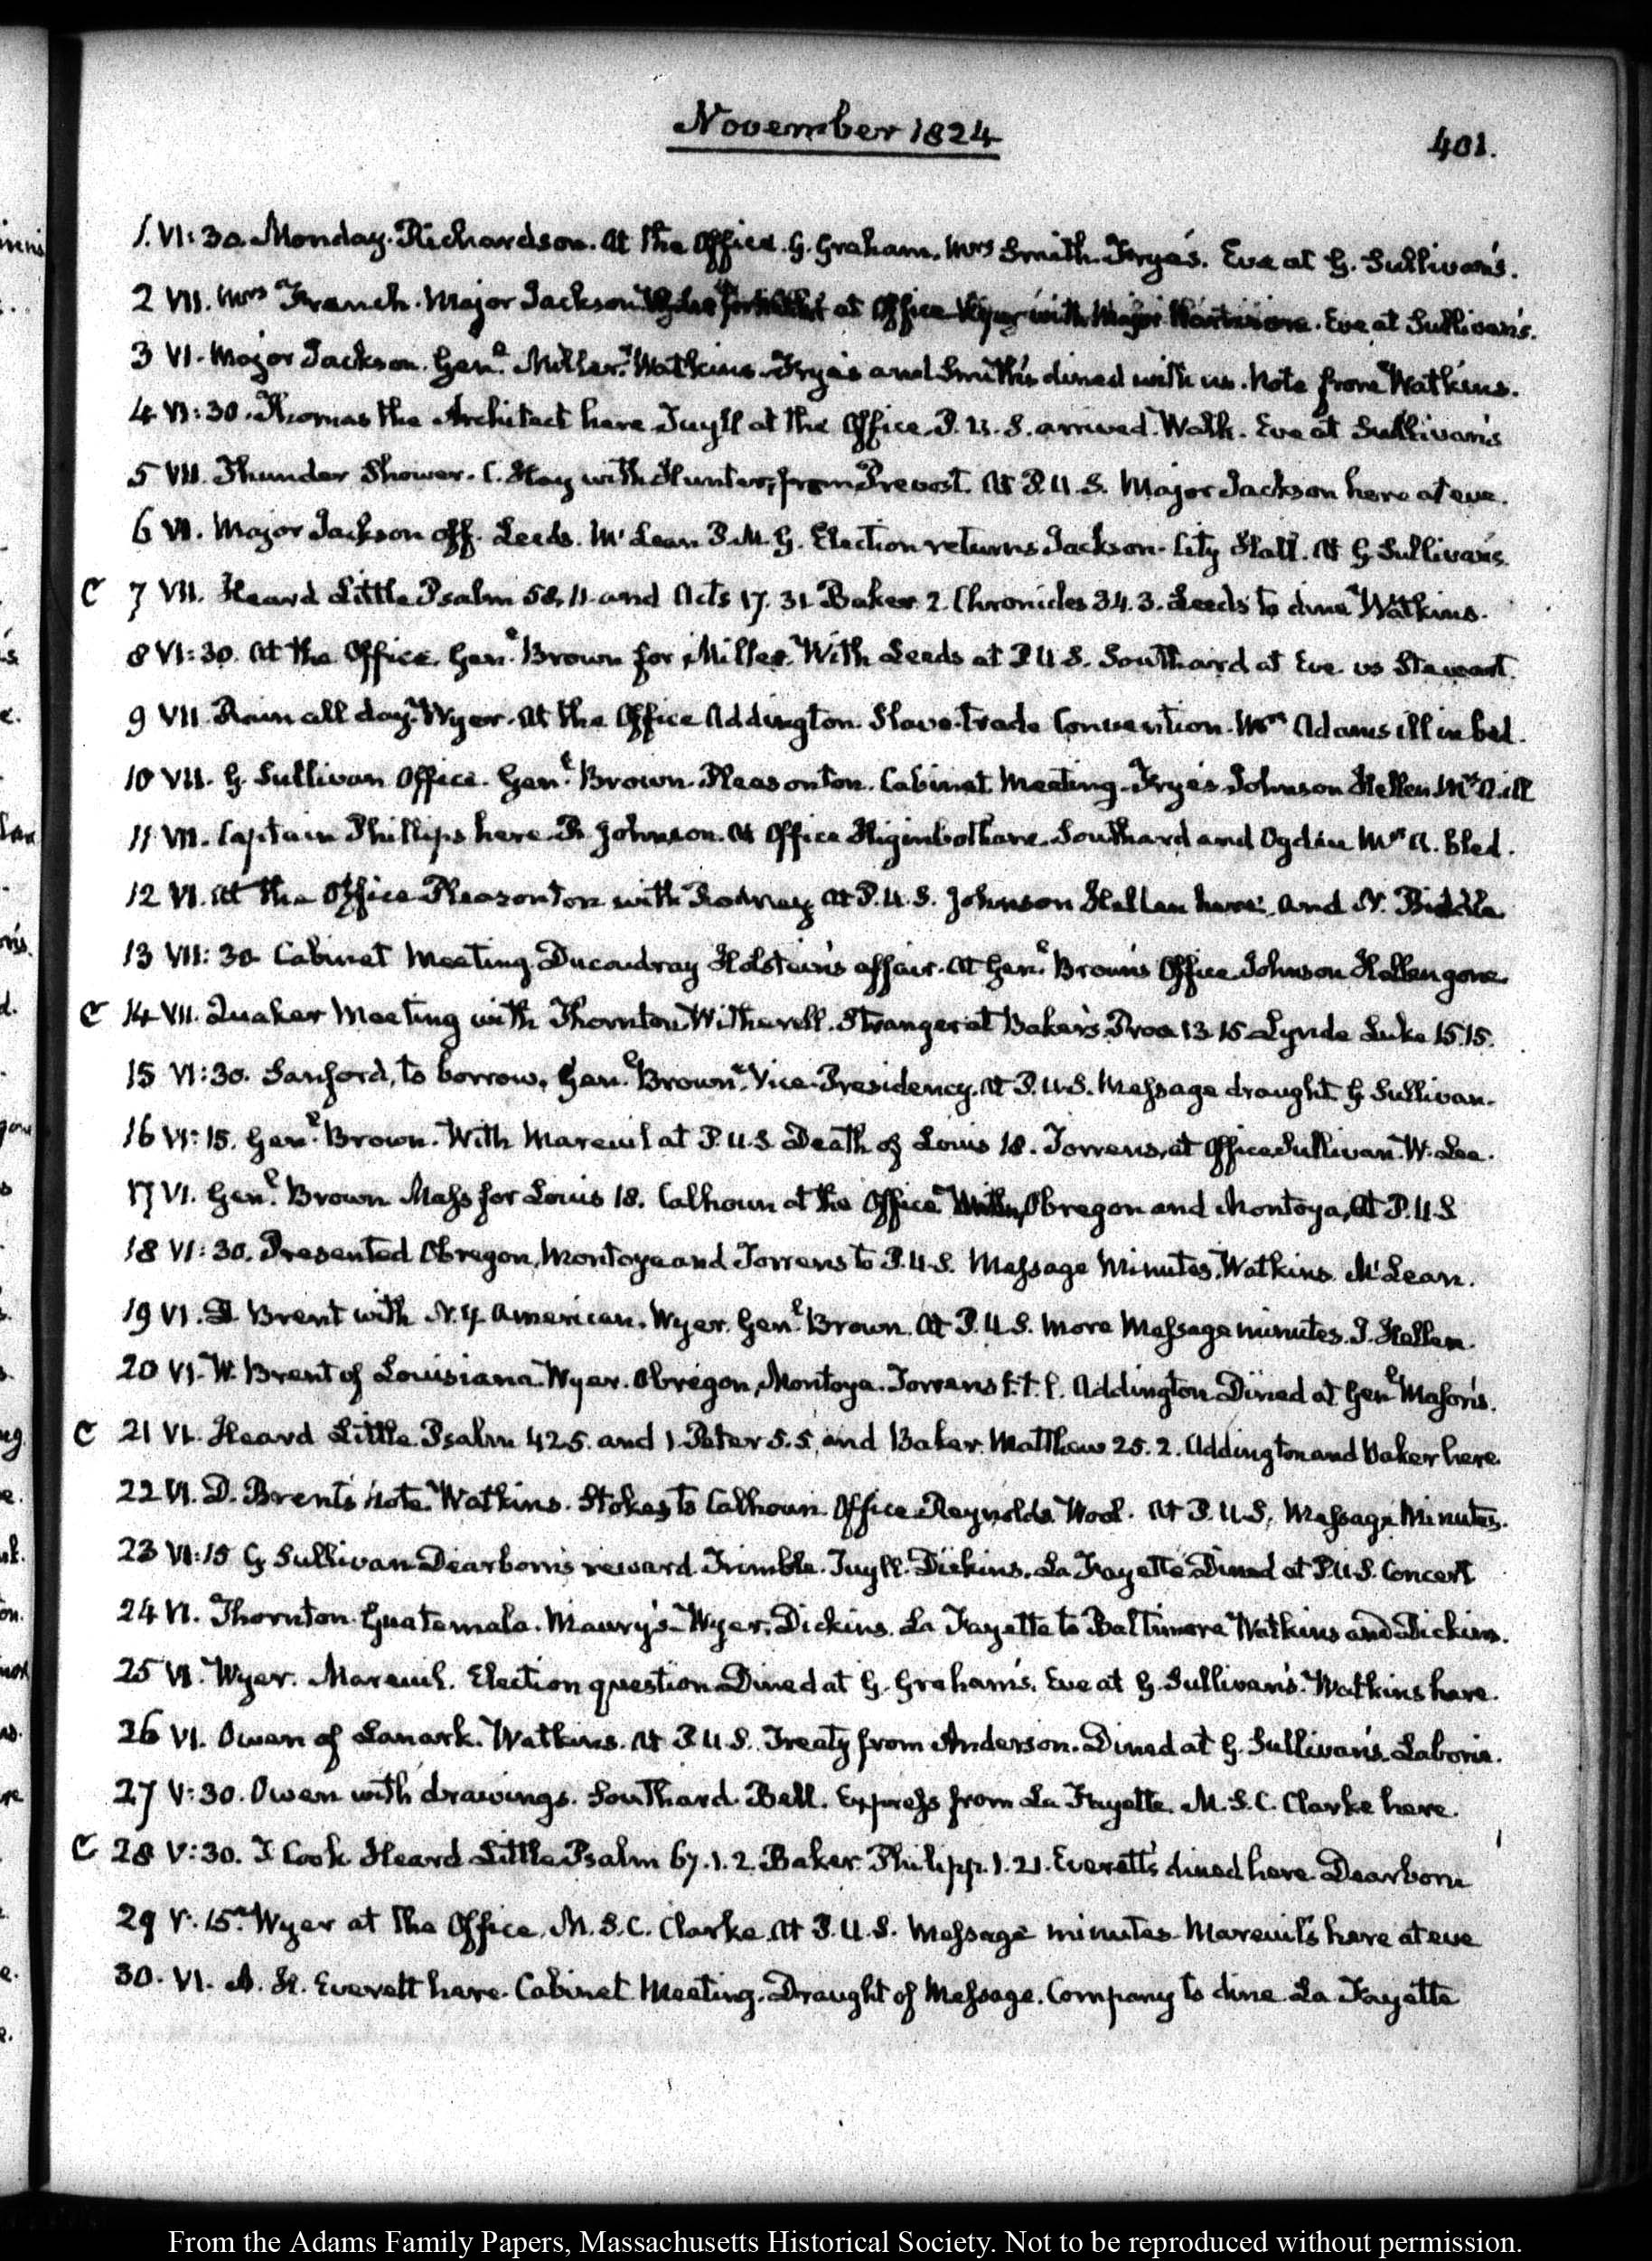 November 1824
401.
1. VI:30. Monday. Richardson. At the Office. G. Graham. Mrs Smith. Frye's. Eve at G. Sullivan's.
2 VII. Mrs French. Major Jackson at Office Wyer with Major. Eve at Sullivan's.
3 VI. Major Jackson. Genl. Miller. Watkins. Frye's and Smith's dined with us. Note from Watkins.
4 VI:30. Thomas the Architect here Tuyll at the Office. P. U. S. arrived. Walk. Eve at Sullivan's
5 VII. Thunder Shower. C. Hay with Hunter, from Prevost. At P. U. S. Major Jackson here at eve.
6 VI. Major Jackson off. Leeds. McLean P. M. G. Election returns Jackson. City Hall. At G Sullivan's.
C 7 VII. Heard Little Psalm 58. 11. and Acts 17. 31 Baker 2. Chronicles 34. 3. Leeds to dine Watkins.
8 VI:30. At the Office. Genl. Brown for Miller. With Leeds at P. U. S. Southard at Eve. vs Stewart.
9 VII. Rain all day. Wyer. At the Office Addington. Slave-trade Convention. Mrs Adams ill in bed.
10 VII. G. Sullivan Office. Genl. Brown. Pleasonton. Cabinet Meeting. Frye's Johnson Hellen Mrs A. ill
11 VII. Captain Phillips here. R. Johnson. At Office Higinbotham. Southard and Ogden Mrs A. bled.
12 VI. At the Office Pleasonton with Rodney At P. U. S. Johnson Hellen here. and N. Biddle
13 VII:30 Cabinet Meeting. Ducoudray Holstein's affair. At Genl. Brown's Office Johnson Hellen gone.
C 14 VII. Quaker Meeting with Thornton Witherell. Stranger at Baker's. Prov 13 15 Lynde Luke 15.15.
15 VI:30. Sanford, to borrow. Genl. Brown. Vice-Presidency. At P. U. S. Message draught G Sullivan.
16 VI:15. Genl. Brown. With Mareuil at P. U. S Death of Louis 18. Torrens, at Office Sullivan. W. Lee.
17 VI. Genl. Brown Mass for Louis 18. Calhoun at the Office Obregon and Montoya, At P. U. S
18 VI:30. Presented Obregon, Montoya and Torrens to P. U. S. Message Minutes, Watkins McLean.
19 VI. D. Brent with N. Y. American. Wyer. Genl. Brown. At P. U. S. more Message minutes. J. Hellen.
20 VI. W. Brent of Louisiana. Wyer. Obregon, Montoya. Torrens t. t. l. Addington. Dined at Genl Mason's.
C 21 VI. Heard Little. Psalm 42.5. and 1 Peter 5. 5. and Baker. Matthew 25. 2. Addington and Baker here.
22 VI. D. Brent's note. Watkins. Stokes to Calhoun. Office Reynolds Wool. At P. U. S. Message Minutes.
23 VI:15 G Sullivan Dearborn's reward. Trimble. Tuyll. Dickins. La Fayette Dined at P. U. S. Concert
24 VI. Thornton. Guatemala. Maury's. Wyer. Dickins. La Fayette to Baltimore Watkins and Dickins.
25 VI. Wyer. Mareuil. Election question Dined at G. Graham's. Eve at G. Sullivan's. Watkins here.
26 VI. Owen of Lanark. Watkins. At P. U. S. Treaty from Anderson. Dined at G. Sullivan's. Laborie.
27 V:30. Owen with drawings. Southard. Bell. Express from La Fayette. M. S. C. Clarke here.
C 28 V:30. J Cook Heard Little Psalm 67. 1. 2. Baker. Philipp. 1. 21. Everett's dined here. Dearborn
29 V:15. Wyer at the Office. M. S. C. Clarke. At P. U. S. Message minutes. Mareuil's here at eve
30. VI. A. H. Everett here. Cabinet Meeting. Draught of Message. Company to dine La Fayette
From the Adams Family Papers, Massachusetts Historical Society. Not to be reproduced without permission.